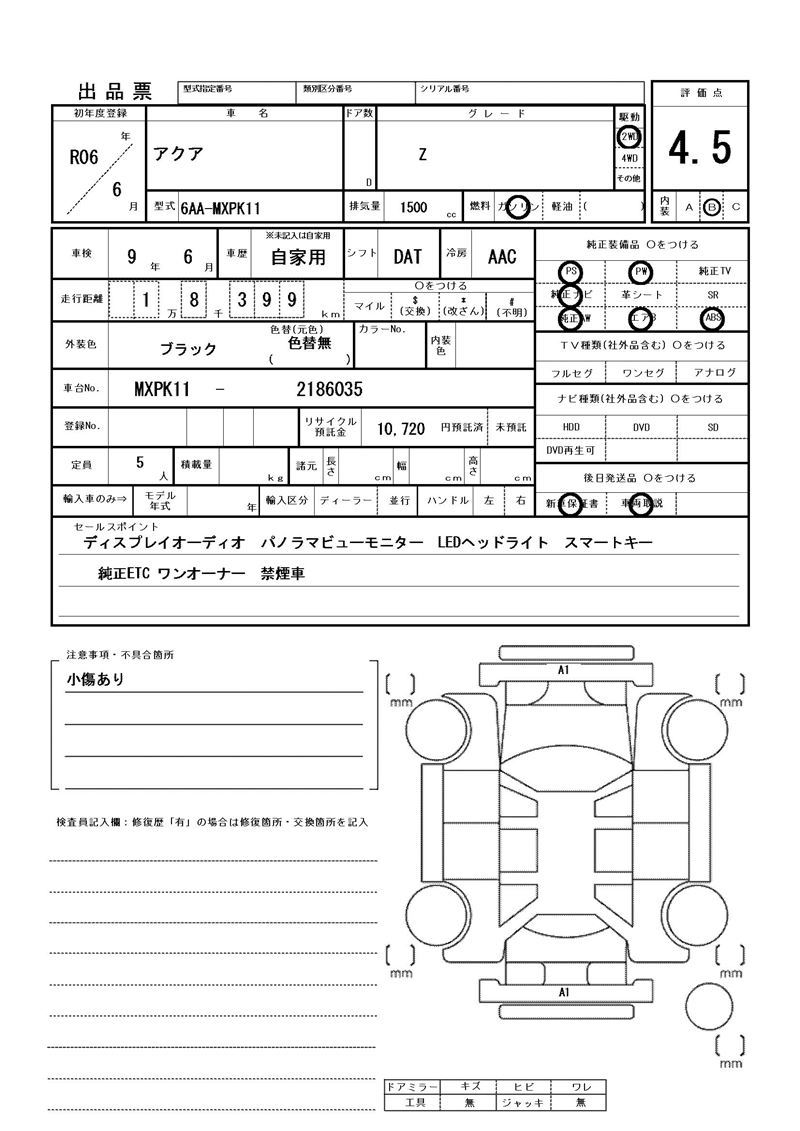 出品票 型式指定番号 類別区分番号 シリアル番号 評価点
初年度登録 車名 ドア数 グレード 駆動
R06 年 6 月 アクア D Z 2WD 4WD その他 4.5
型式 6AA-MXPK11 排気量 1500 cc 燃料 ガソリン 軽油 ( ) 内装 A B C
車検 9 年 6 月 車歴 ※未記入は自家用 自家用 シフト DAT 冷房 AAC 純正装備品 〇をつける
PS PW 純正TV
走行距離 1 万 8 千 3 9 9 km 〇をつける 純正ナビ 革シート SR
マイル $ (交換) * (改ざん) # (不明) 純正AW エアB ABS
外装色 ブラック 色替(元色) 色替無 ( ) カラーNo. 内装色 TV種類(社外品含む) 〇をつける
フルセグ ワンセグ アナログ
車台No. MXPK11 - 2186035 ナビ種類(社外品含む) 〇をつける
登録No. リサイクル預託金 10,720 円預託済 未預託 HDD DVD SD
DVD再生可
定員 5 人 積載量 kg 諸元 長さ cm 幅 cm 高さ cm 後日発送品 〇をつける
輸入車のみ⇒ モデル年式 年 輸入区分 ディーラー 並行 ハンドル 左 右 新車保証書 車両取説
セールスポイント
ディスプレイオーディオ パノラマビューモニター LEDヘッドライト スマートキー
純正ETC ワンオーナー 禁煙車
注意事項・不具合箇所
小傷あり
検査員記入欄：修復歴「有」の場合は修復箇所・交換箇所を記入
A1
[ ] mm [ ] mm
[ ] mm [ ] mm
A1
[ ] mm
ドアミラー キズ ヒビ ワレ
工具 無 ジャッキ 無